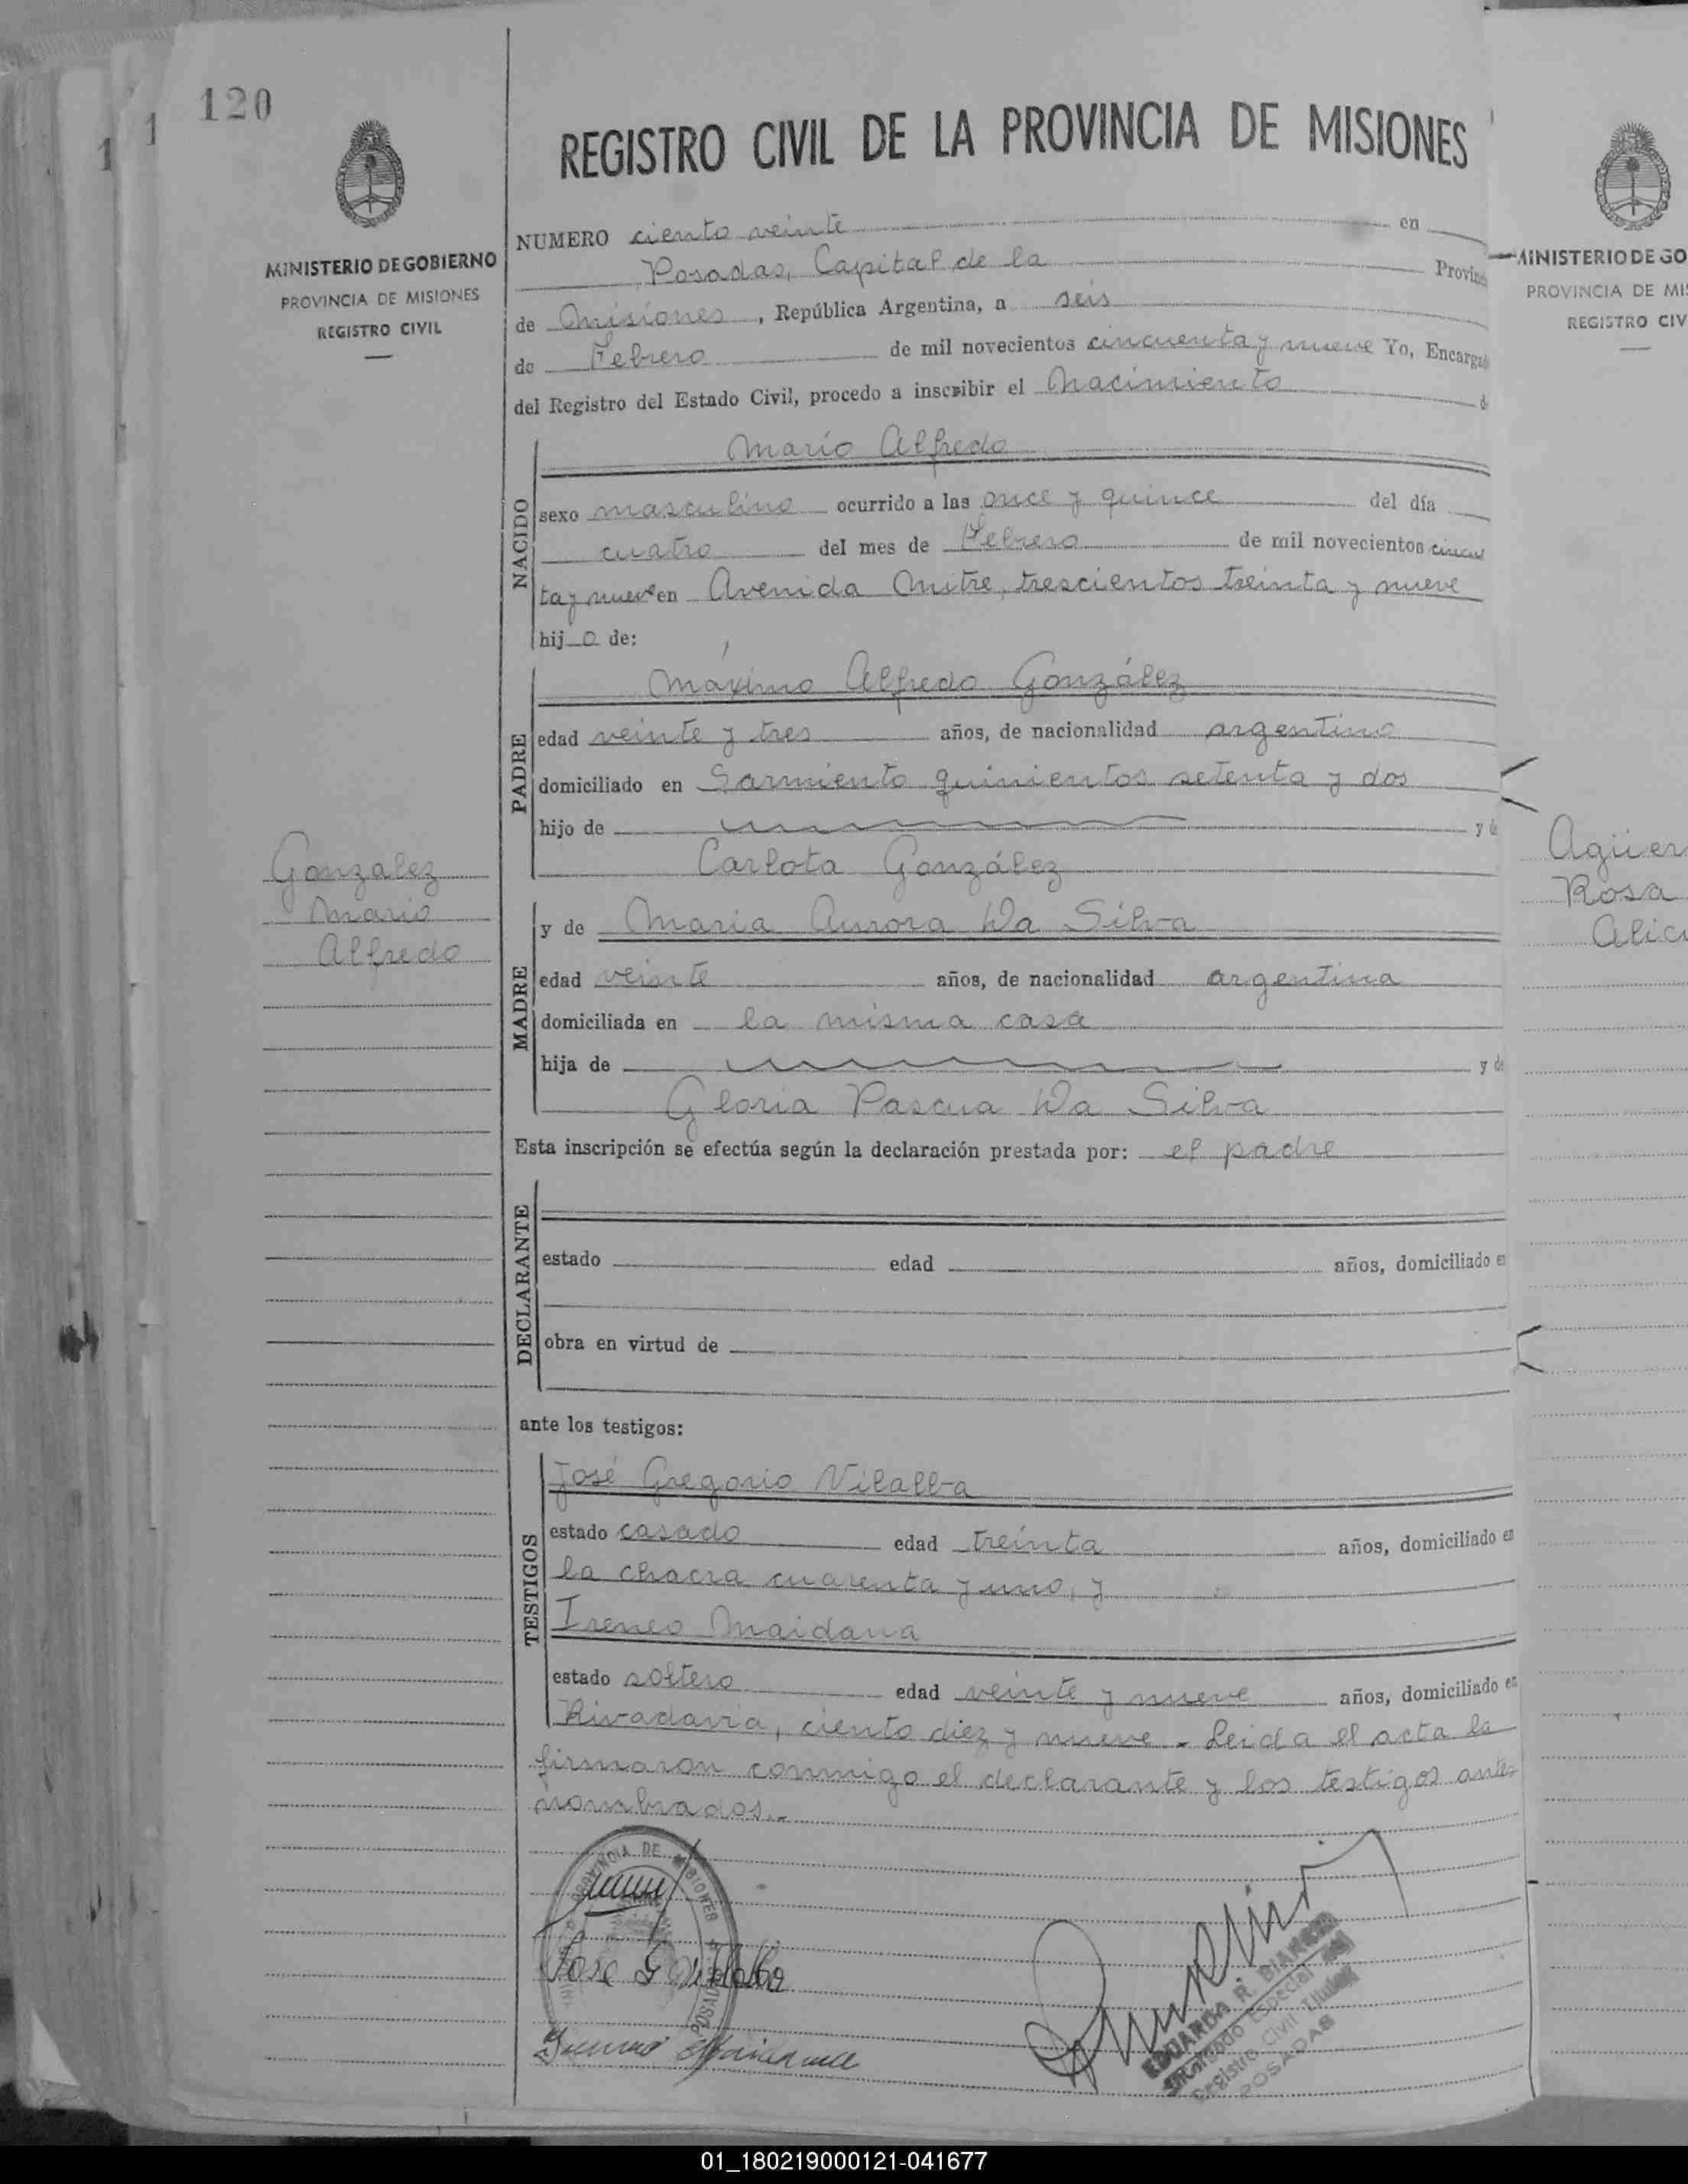 120
REGISTRO CIVIL DE LA PROVINCIA DE MISIONES
MINISTERIO DE GOBIERNO
PROVINCIA DE MISIONES
REGISTRO CIVIL
NUMERO ciento veinte en
Posadas, Capital de la Provin
de Misiones, República Argentina, a seis
de Febrero de mil novecientos cincuenta y nueve Yo, Encarga
del Registro del Estado Civil, procedo a inscribir el Nacimiento d
Mario Alfredo
NACIDO
sexo masculino ocurrido a las once y quince del día
cuatro del mes de Febrero de mil novecientos cincu
ta y nueve en Avenida Mitre, trescientos treinta y nueve
hijo de:
Máximo Alfredo González
PADRE
edad veinte y tres años, de nacionalidad argentino
domiciliado en Sarmiento quinientos setenta y dos
hijo de y d
Carlota González
Gonzalez
Mario
Alfredo
MADRE
y de Maria Aurora Da Silva
edad veinte años, de nacionalidad argentina
domiciliada en la misma casa
hija de y d
Gloria Pascua Da Silva
Esta inscripción se efectúa según la declaración prestada por: el padre
DECLARANTE
estado edad años, domiciliado e
obra en virtud de
ante los testigos:
TESTIGOS
José Gregorio Vilalba
estado casado edad treinta años, domiciliado en
la chacra cuarenta y uno, y
Ireneo Maidana
estado soltero edad veinte y nueve años, domiciliado en
Rivadavia, ciento diez y nueve. Leida el acta la
firmaron conmigo el declarante y los testigos antes
nombrados.
PROVINCIA DE MISIONES
POSADAS
Jose G Vilalba
EDUARDA R.
Encargado Especial
Registro Civil Titular
POSADAS
MINISTERIO DE GO
PROVINCIA DE MIS
REGISTRO CIV
Agüer
Rosa
Alici
01_180219000121-041677